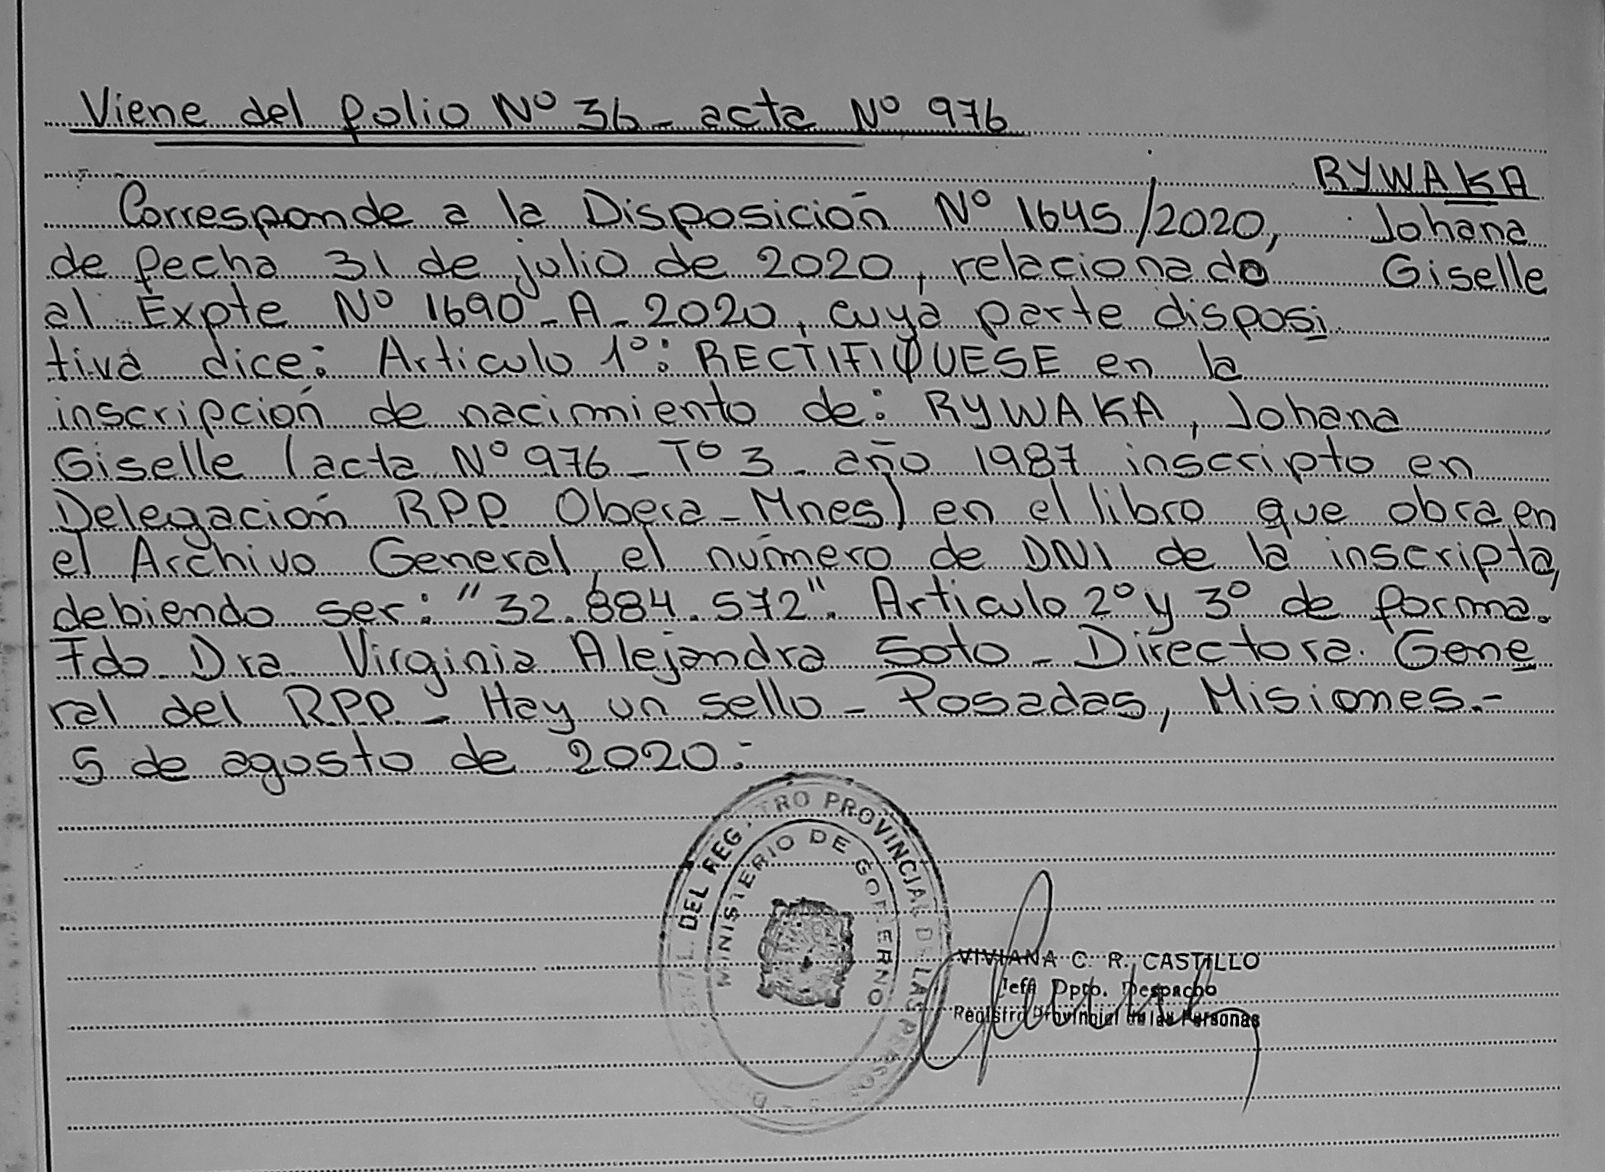 Viene del folio Nº 36 - acta Nº 976
RYWAKA
Johana
Giselle
Corresponde a la Disposición Nº 1645/2020,
de fecha 31 de julio de 2020, relacionado
al Expte Nº 1690-A-2020, cuya parte disposi
tiva dice: Articulo 1º: RECTIFIQUESE en la
inscripción de nacimiento de: RYWAKA, Johana
Giselle (acta Nº 976 - Tº 3 - año 1987 inscripto en
Delegación RPP. Obera - Mnes) en el libro que obra en
el Archivo General, el número de DNI de la inscripta,
debiendo ser: "32.884.572". Articulo 2º y 3º de forma.
Fdo Dra Virginia Alejandra Soto - Directora Gene
ral del RPP - Hay un sello - Posadas, Misiones.-
5 de agosto de 2020.-
DEL REGISTRO PROVINCIAL DE LAS PERSONAS
MINISTERIO DE GOBIERNO
VIVIANA C. R. CASTILLO
Jefa Dpto. Despacho
Registro Provincial de las Personas